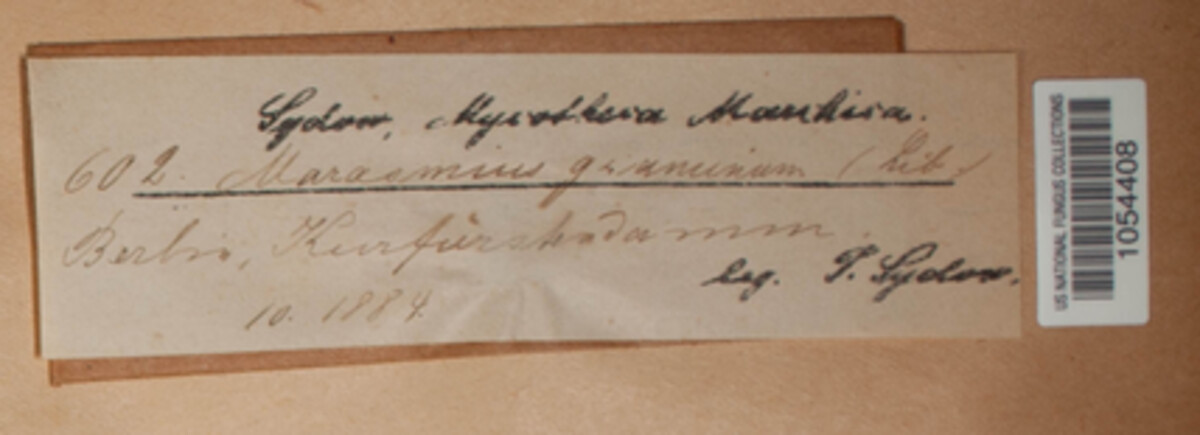 Sydow, Mycotheca Marchica.
602. Marasmius graminum (Lib.)
Berlin, Kurfürstendamm.
leg. P. Sydow.
10. 1884.
US NATIONAL FUNGUS COLLECTIONS
1054408